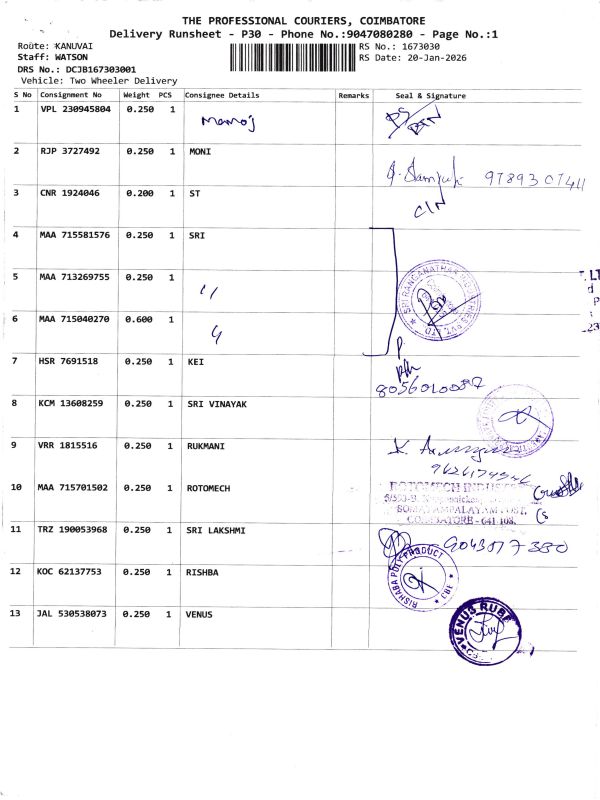 THE PROFESSIONAL COURIERS, COIMBATORE
Delivery Runsheet - P30 - Phone No.:9047080280 - Page No.:1
Route: KANUVAI
Staff: WATSON
DRS No.: DCJB167303001
Vehicle: Two Wheeler Delivery
RS No.: 1673030
RS Date: 20-Jan-2026
S No Consignment No Weight PCS Consignee Details Remarks Seal & Signature
1 VPL 230945804 0.250 1 Manoj
2 RJP 3727492 0.250 1 MONI
3 CNR 1924046 0.200 1 ST
4 MAA 715581576 0.250 1 SRI
5 MAA 713269755 0.250 1 "
6 MAA 715040270 0.600 1 "
SRI RANGANATHAR INDUSTRIES PVT. LTD
7 HSR 7691518 0.250 1 KEI
8 KCM 13608259 0.250 1 SRI VINAYAK
9 VRR 1815516 0.250 1 RUKMANI
10 MAA 715701502 0.250 1 ROTOMECH
ROTOMECH INDUST
COIMBATORE - 641 108.
11 TRZ 190053968 0.250 1 SRI LAKSHMI
9043017380
12 KOC 62137753 0.250 1 RISHBA
RISHABA POLY PRODUCT CBE
13 JAL 530538073 0.250 1 VENUS
VENUS RUBB